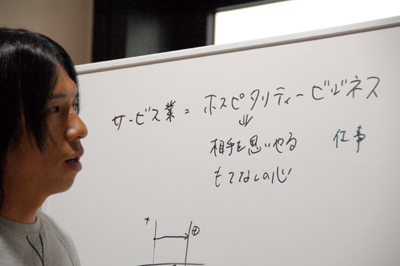 サービス業=ホスピタリティービジネス
⇓
相手を思いやる 仕事
もてなしの心
+ ⊕